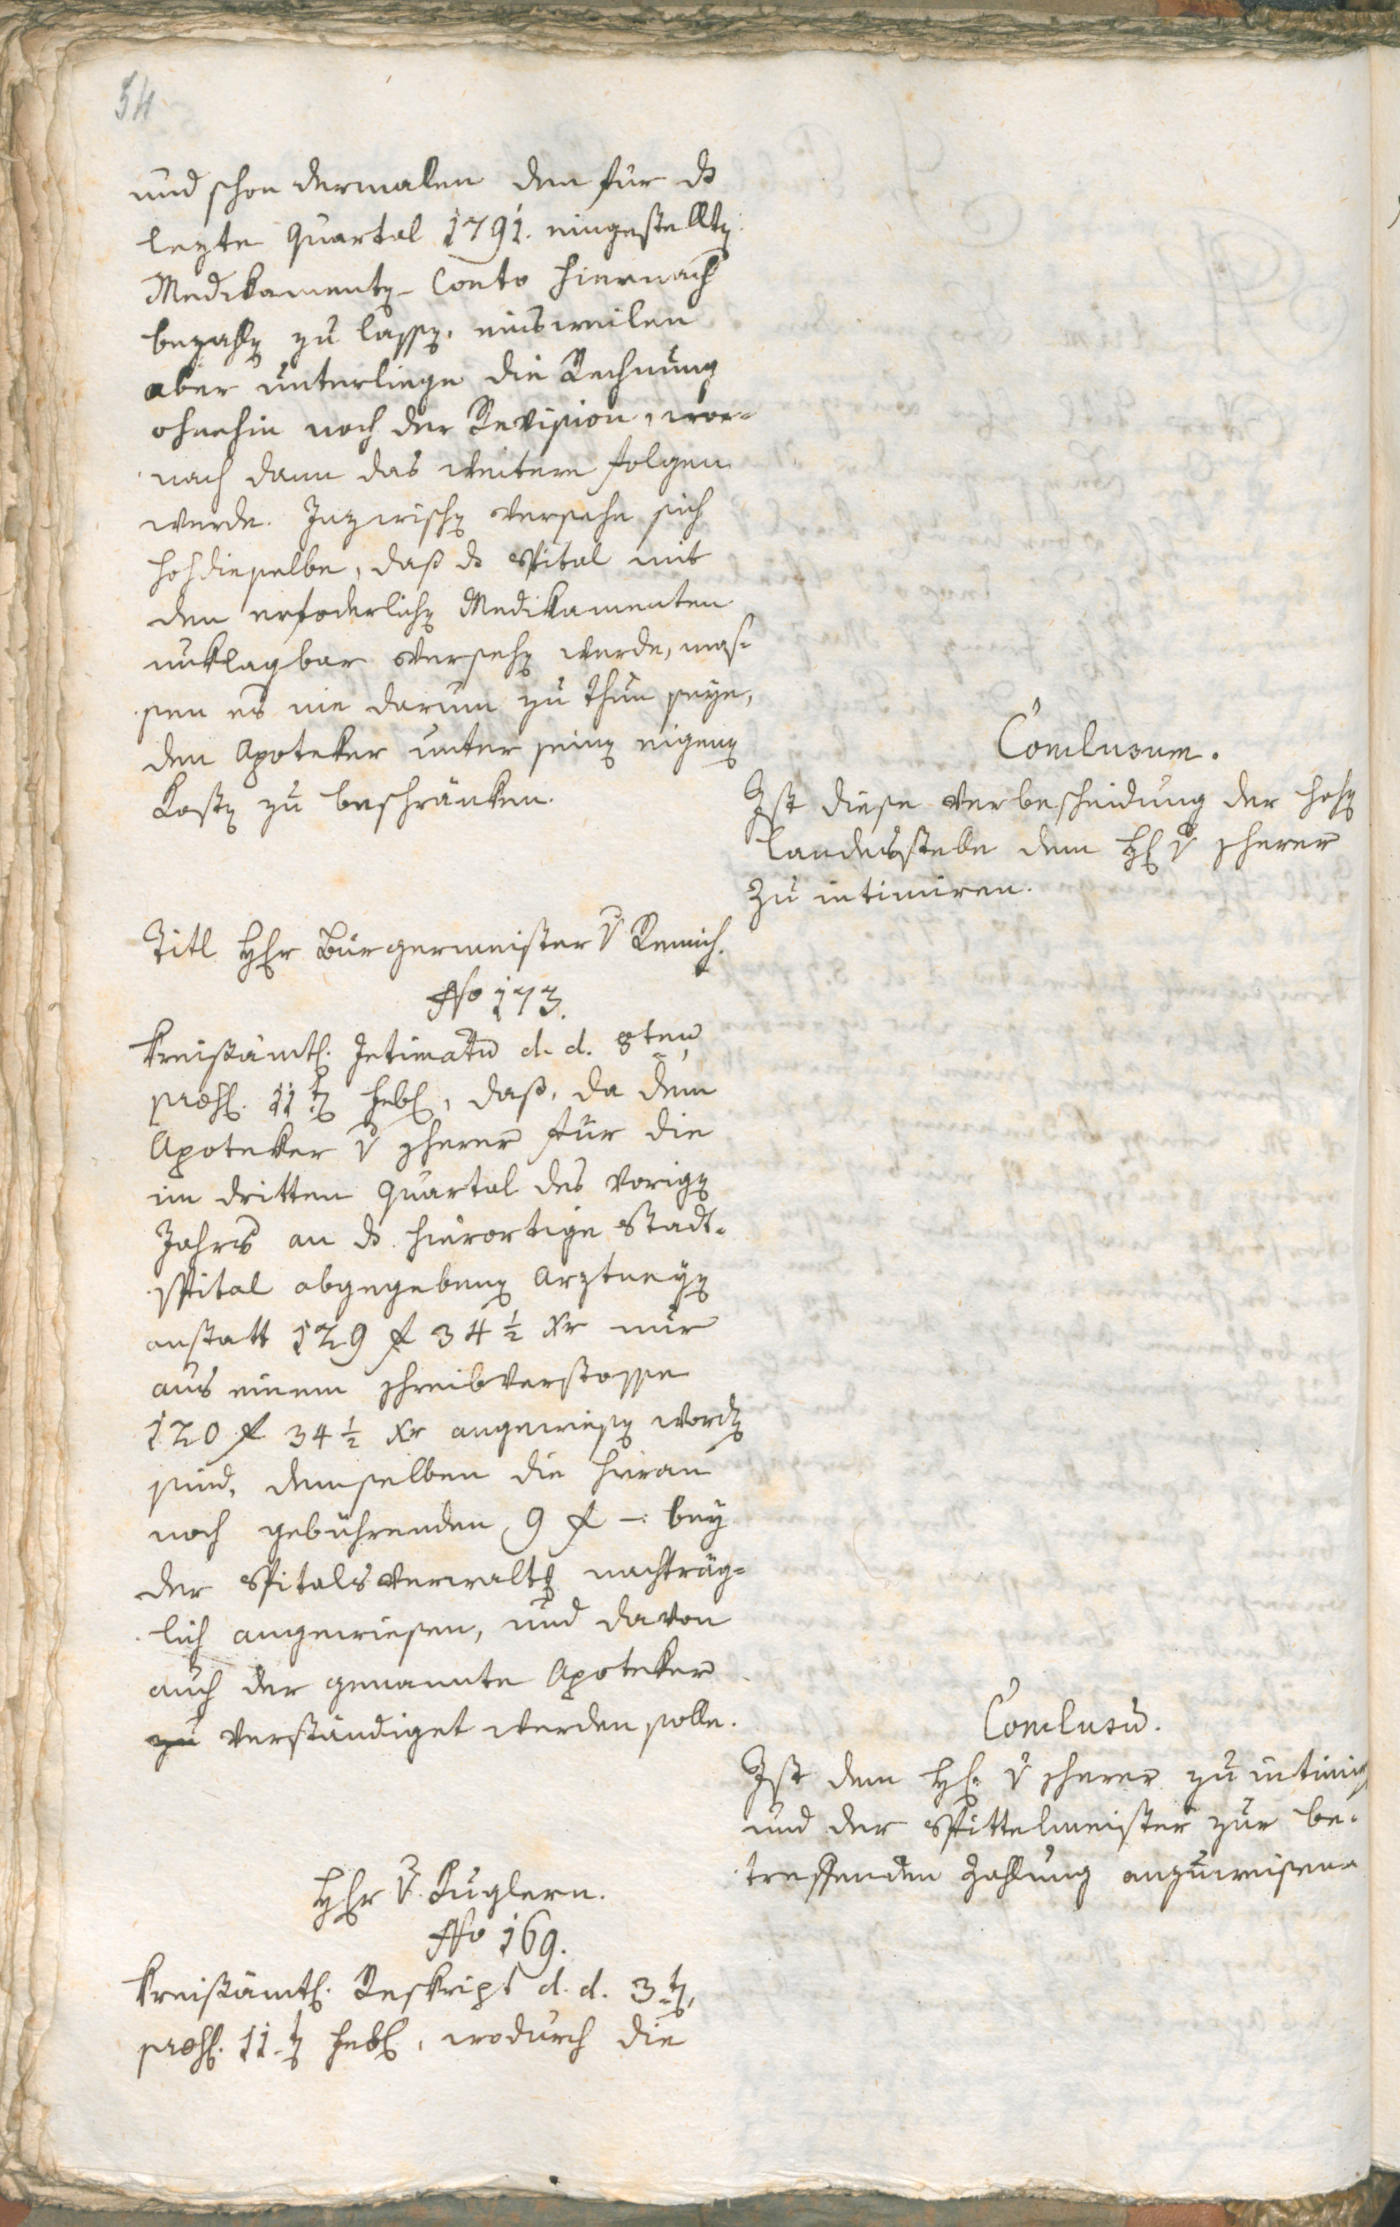 54
und schon dermalen den für ds
lezte Quartal 1791. eingestellten
Medikamenten-Conto hiernach
bezahlen zu lassen, einsweilen
aber unterliege die Rechnung
ohnehin noch der Revision, wor=
nach dann das weitere folgen
werde. Inzwischen versehe sich
hochdieselbe, daß ds Spital mit
den erfoderlichen Medikamenten
unklagbar versehen werde, mas=
sen es nie darum zu thun seye,
den Apoteker unter seinen eigenen
Kosten zu beschränken.
Conclusum.
Ist diese Verbescheidung der hohen
Landesstelle dem H: v Scherer
zu intimiren.
Titl HEr Bürgermeister v Remich.
No 173.
Kreisämtl. Intimatum d. d. 8ten
præs. 11ten Feb:, daß, da dem
Apoteker v Scherer für die
im dritten Quartal des vorigen
Jahrs an ds hierortige Stadt=
spital abgegebenen Arztneyen
anstatt 129 f 34 ½ xr nur
aus einem Schreibverstosse
120 f 34 ½ xr angewiesen worden
sind, demselben die hieran
noch gebührenden 9 f -: bey
der Spitalsverwaltg nachträg=
lich angewiesen, und davon
auch der genannte Apoteker
zu verständiget werden solle.
Conclusum.
Ist dem H: v Scherer zu intimiren
und der Spittelmeister zur be=
treffenden Zahlung anzuweisen
HEr v. Kuglern.
No 169.
Kreisämtl. Reskript d. d. 3ten,
præs. 11ten Feb:, wodurch die